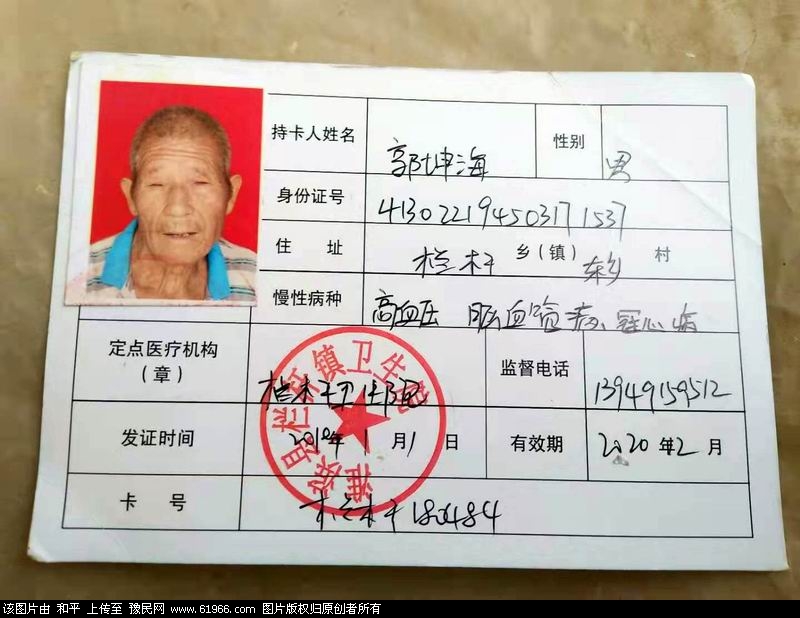 持卡人姓名 郭坤海 性别 男
身份证号 413022194503171537
住 址 栏杆 乡（镇） 东乡 村
慢性病种 高血压 脑血管病、冠心病
定点医疗机构（章） 栏杆卫生院 监督电话 13949159512
发证时间 年1月1日 有效期 2020年2月
卡 号 栏杆180484
淮滨县栏杆镇卫生院
该图片由 和平 上传至 豫民网 www.61966.com 图片版权归原创者所有